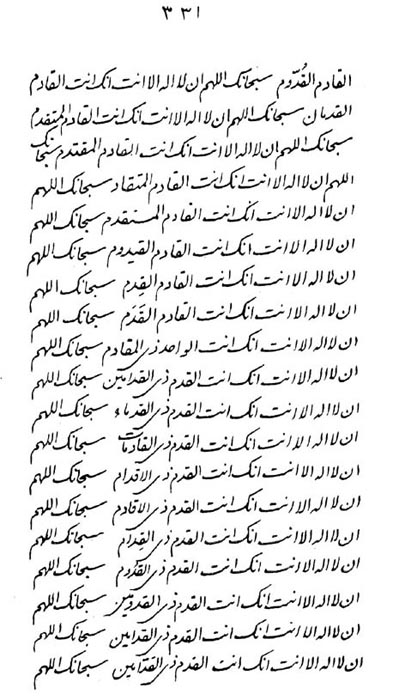 ٣٣١
القادم القدّوم سبحانك اللهم ان لا اله الا انت انك انت القادم
القدمان سبحانك اللهم ان لا اله الا انت انك انت القادم المتقدم
سبحانك اللهم ان لا اله الا انت انك انت القادم المقتدم سبحانك
اللهم ان لا اله الا انت انك انت القادم المتقاد سبحانك اللهم
ان لا اله الا انت انك انت القادم المستقدم سبحانك اللهم
ان لا اله الا انت انك انت القادم القيدوم سبحانك اللهم
ان لا اله الا انت انك انت القادم القدم سبحانك اللهم
ان لا اله الا انت انك انت القادم القدم سبحانك اللهم
ان لا اله الا انت انك انت الواحد ذى المقادم سبحانك اللهم
ان لا اله الا انت انك انت القدم ذى القدامين سبحانك اللهم
ان لا اله الا انت انك انت القدم ذى القدماء سبحانك اللهم
ان لا اله الا انت انك انت القدم ذى القادمات سبحانك اللهم
ان لا اله الا انت انك انت القدم ذى الاقدام سبحانك اللهم
ان لا اله الا انت انك انت القدم ذى الاقادم سبحانك اللهم
ان لا اله الا انت انك انت القدم ذى القدام سبحانك اللهم
ان لا اله الا انت انك انت القدم ذى القدوم سبحانك اللهم
ان لا اله الا انت انك انت القدم ذى القدومين سبحانك اللهم
ان لا اله الا انت انك انت القدم ذى القدامين سبحانك اللهم
ان لا اله الا انت انك انت القدم ذى سبحانك اللهم